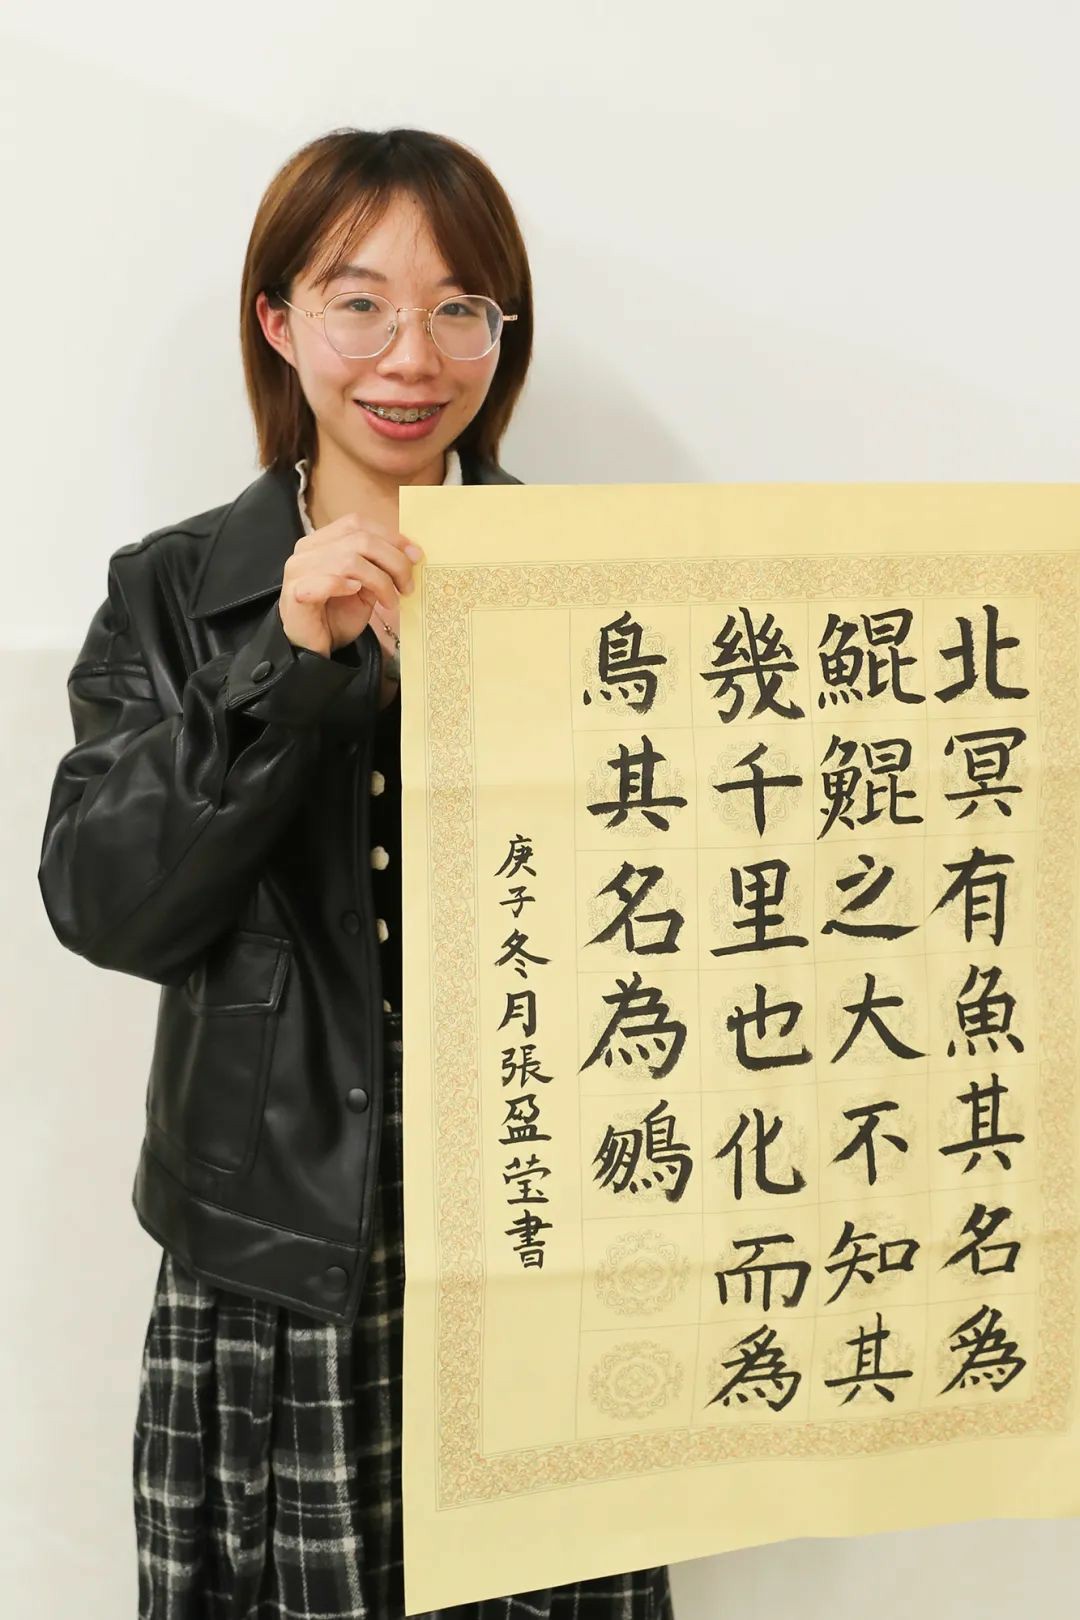 北冥有魚其名為
鯤鯤之大不知其
幾千里也化而為
鳥其名為鵬
庚子冬月張盈莹書